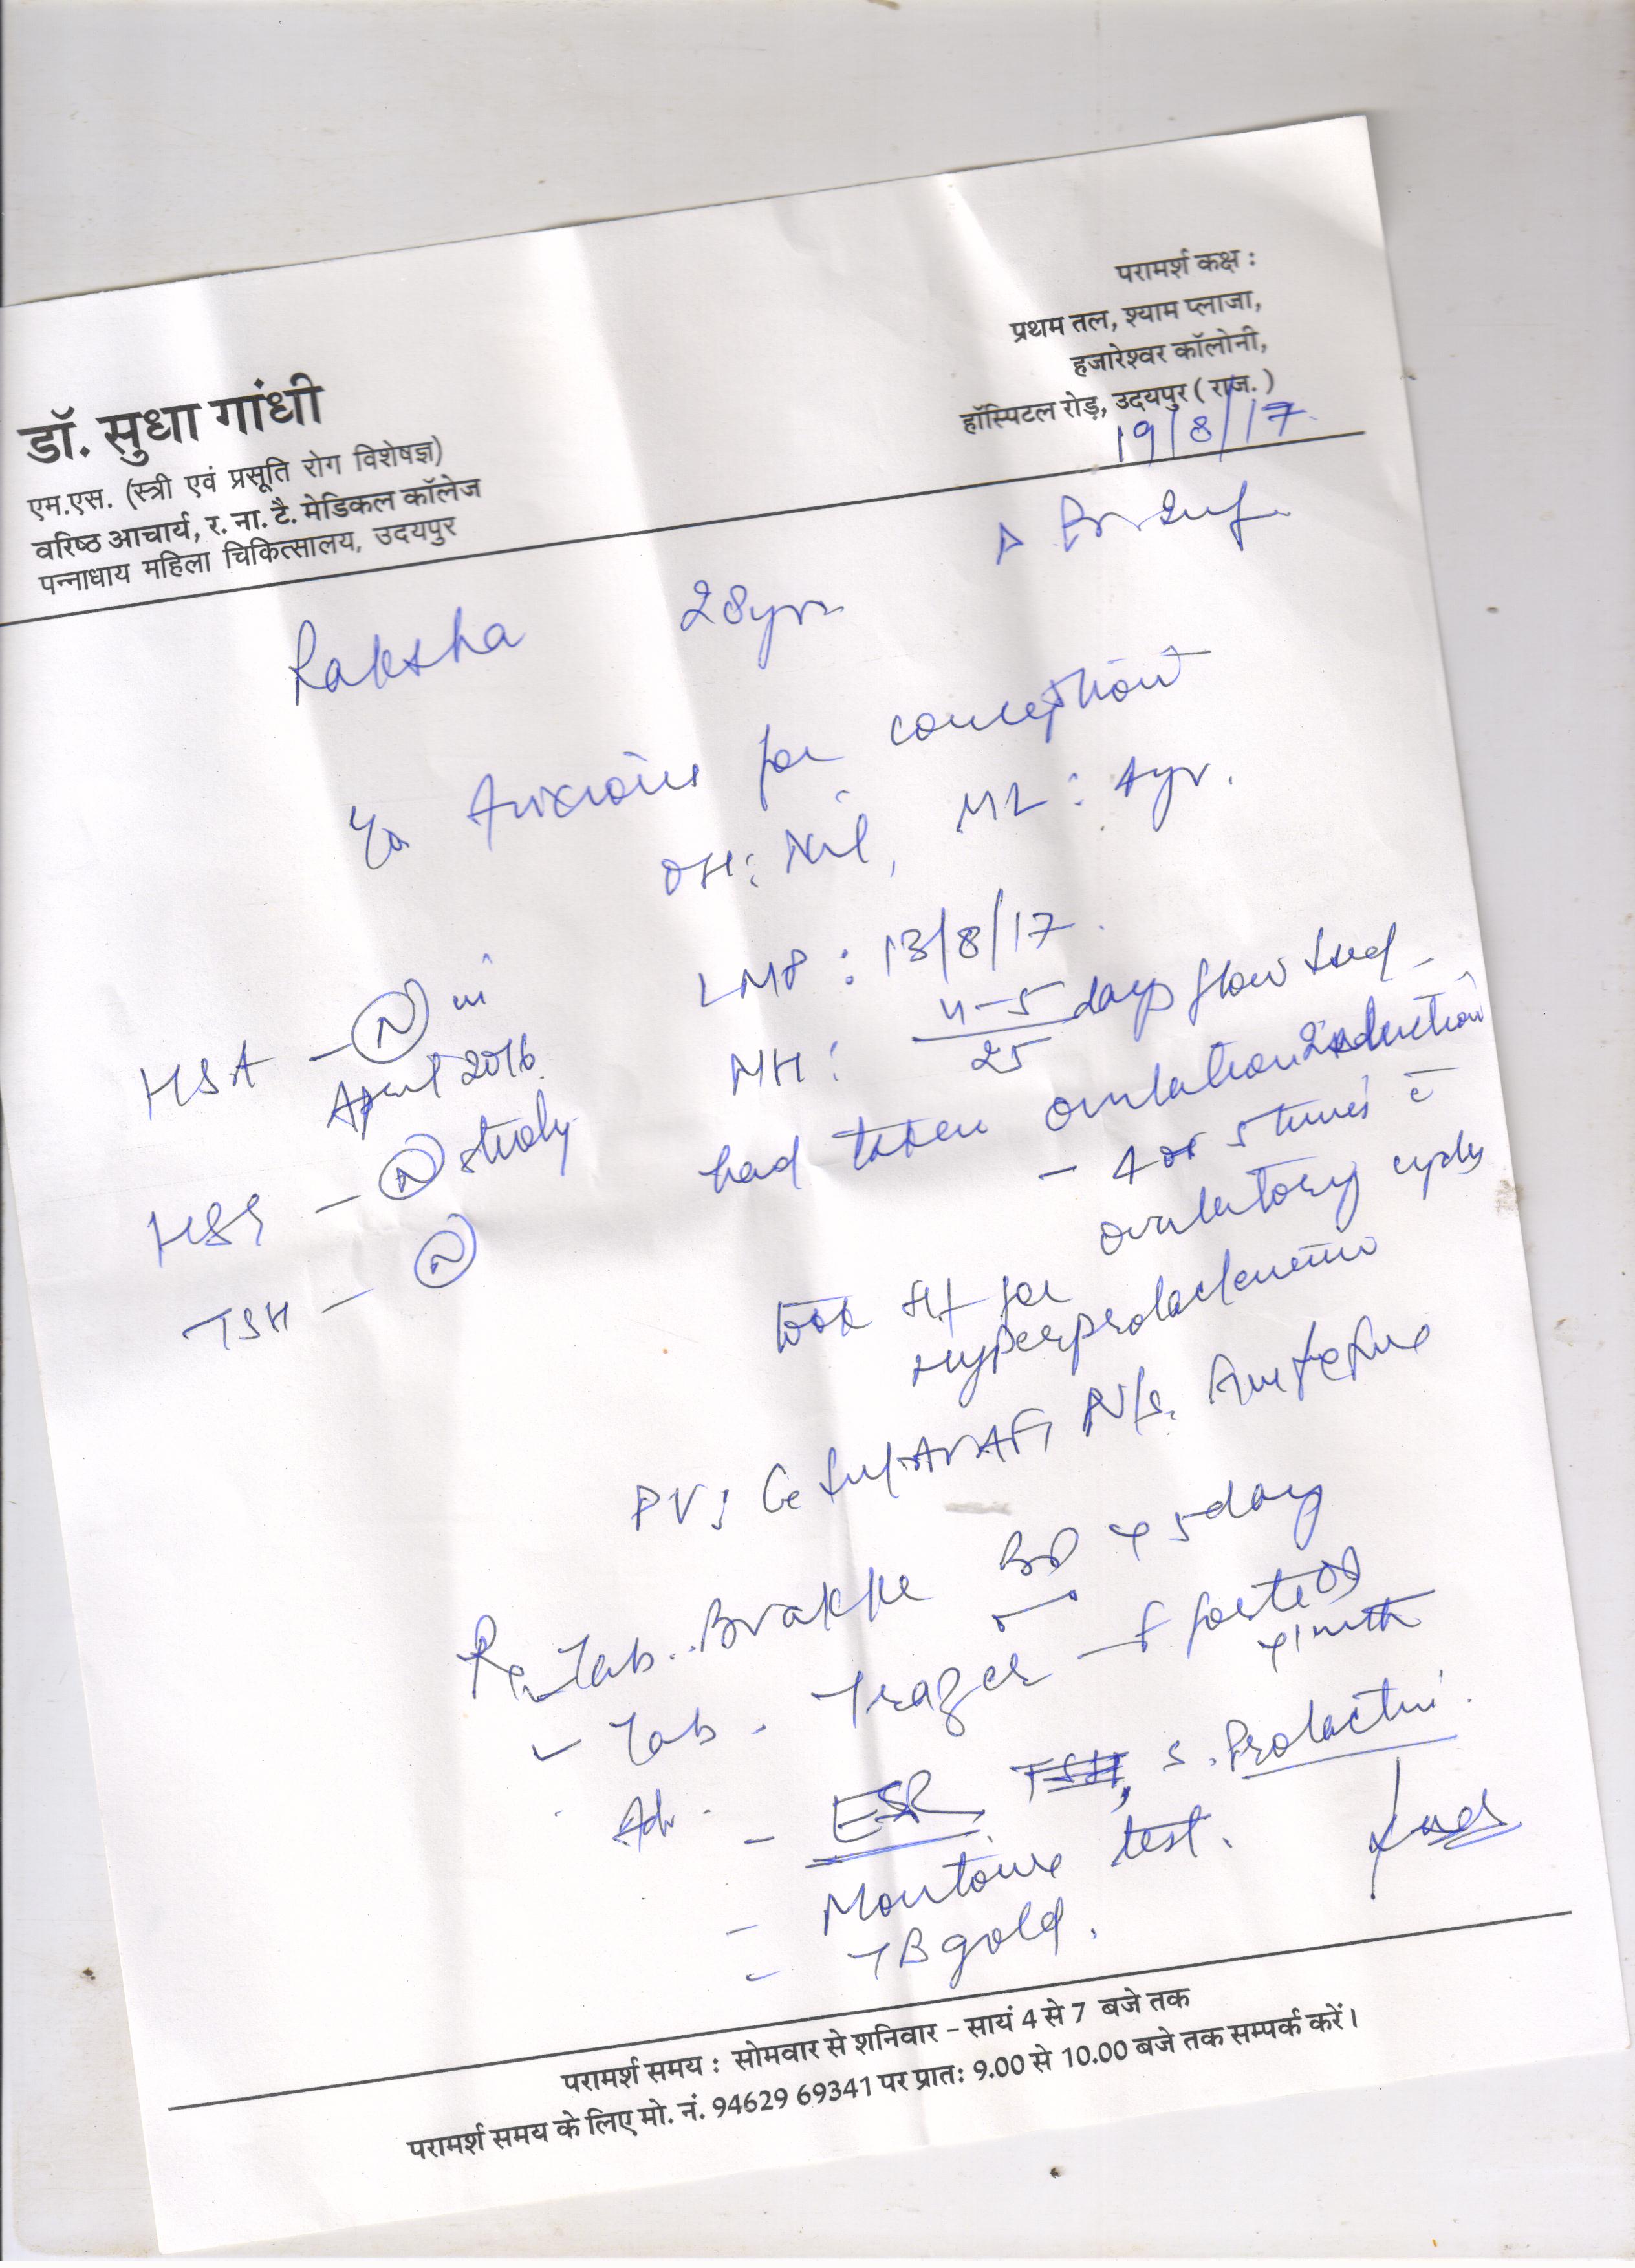 डॉ. सुधा गांधी
एम.एस. (स्त्री एवं प्रसूति रोग विशेषज्ञ)
वरिष्ठ आचार्य, र. ना. टै. मेडिकल कॉलेज
पन्नाधाय महिला चिकित्सालय, उदयपुर
परामर्श कक्ष :
प्रथम तल, श्याम प्लाजा,
हजारेश्वर कॉलोनी,
हॉस्पिटल रोड़, उदयपुर ( राज. )
19/8/17
Raksha 28yrs
Anxious for conception
OH: Nil, ML: 4yr.
LMP : 13/8/17.
MH : 4-5 days flow
25
had taken ovulation Induction
- 4 or 5 times c̄
ovulatory cycles
took for
Hyperprolactenemia
HSA - (N) in
April 2016
HSG - (N) study
TSH - (N)
PV:
Rx Tab. BD x 5day
- Tab. - forte OD
x 1 mth
Adv. - ESR, TSH, S. Prolactin.
- Montoux test.
- TB gold.
परामर्श समय : सोमवार से शनिवार - सायं 4 से 7 बजे तक
परामर्श समय के लिए मो. नं. 94629 69341 पर प्रातः 9.00 से 10.00 बजे तक सम्पर्क करें।